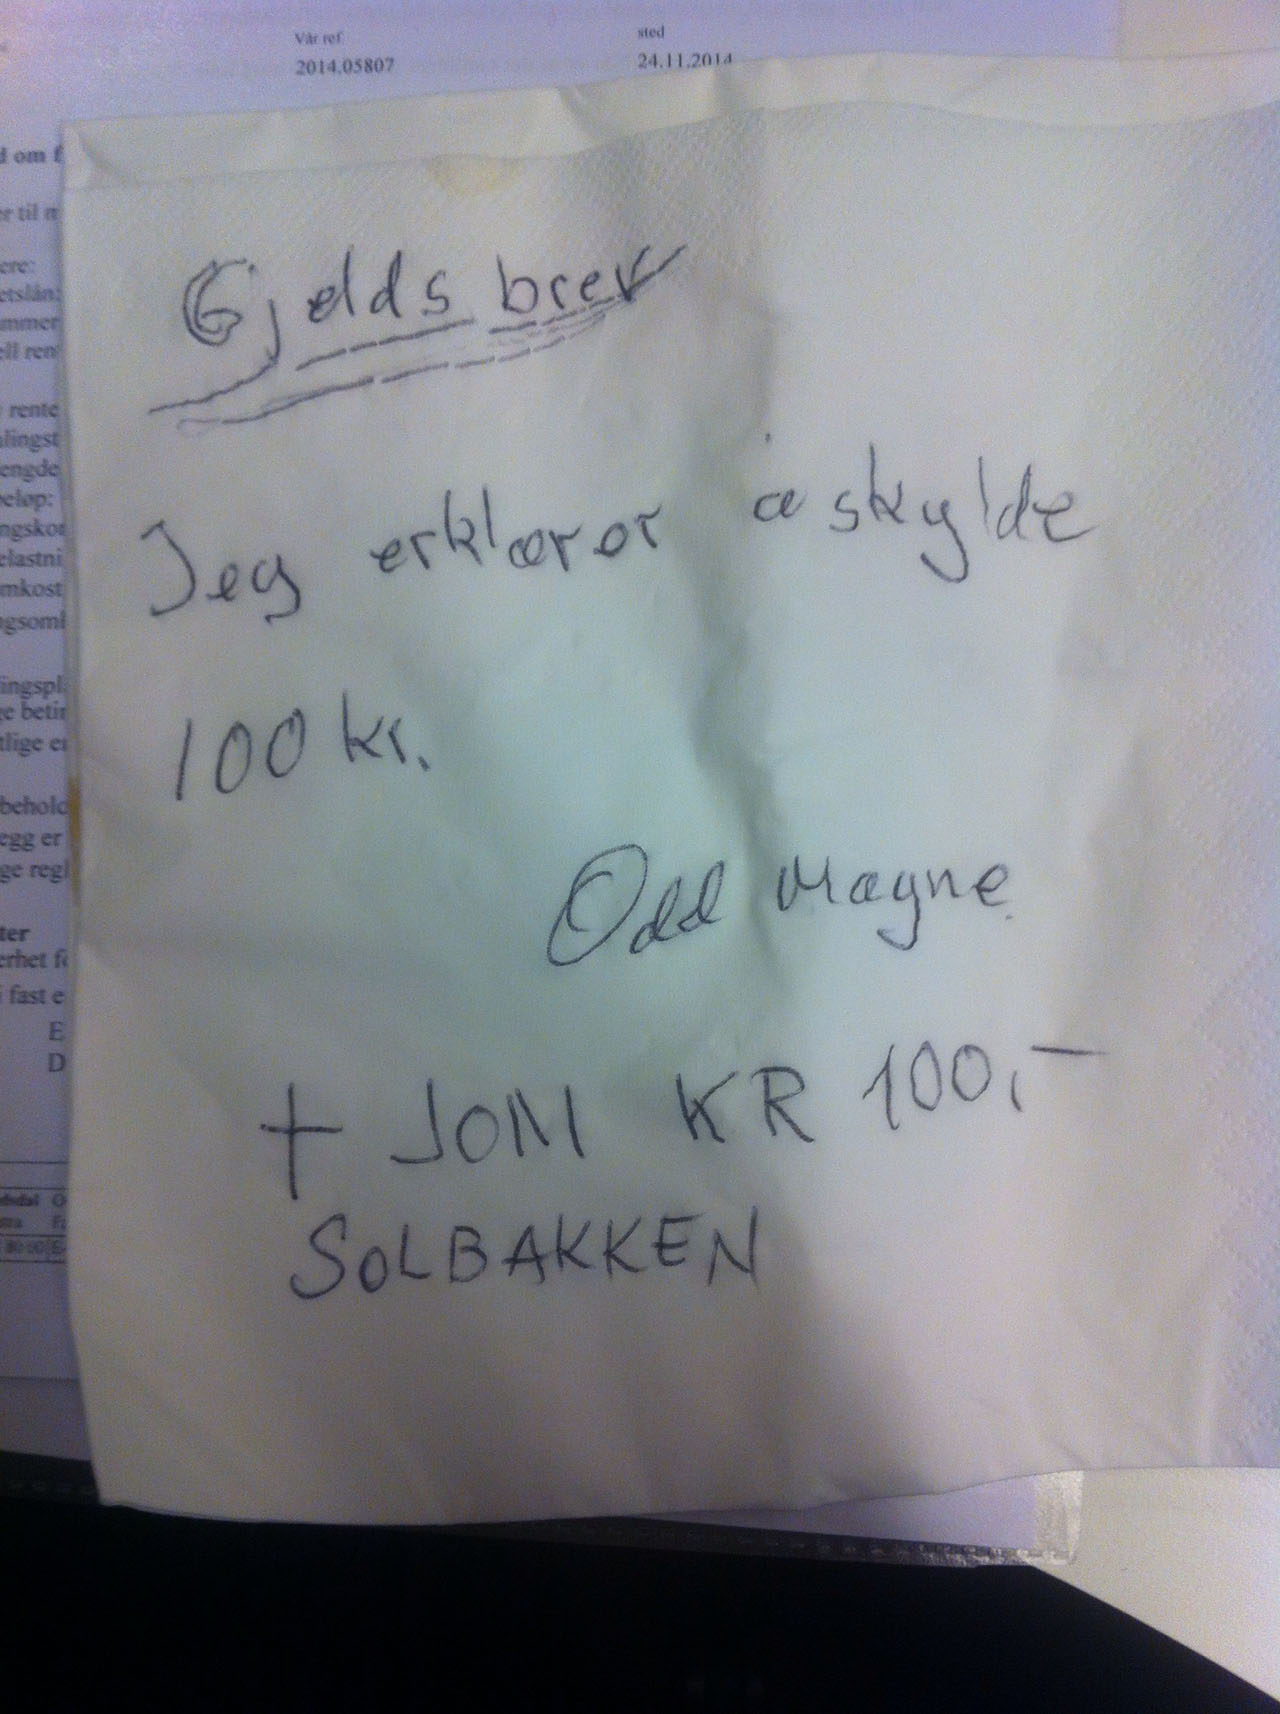 Vår ref. sted
2014.05807 24.11.2014
d om f
er til m
ere:
etslån:
ammer
ell ren
rente
alingst
engde
beløp:
ngskor
elastni
mkost
ngsoml
ingspl
ge betir
tlige er
behold
egg er
ge regl
ter
erhet fo
i fast e
E
D
Gjelds brev
Jeg erklærer å skylde
100 kr.
Odd Magne
+ JON KR 100,-
SOLBAKKEN